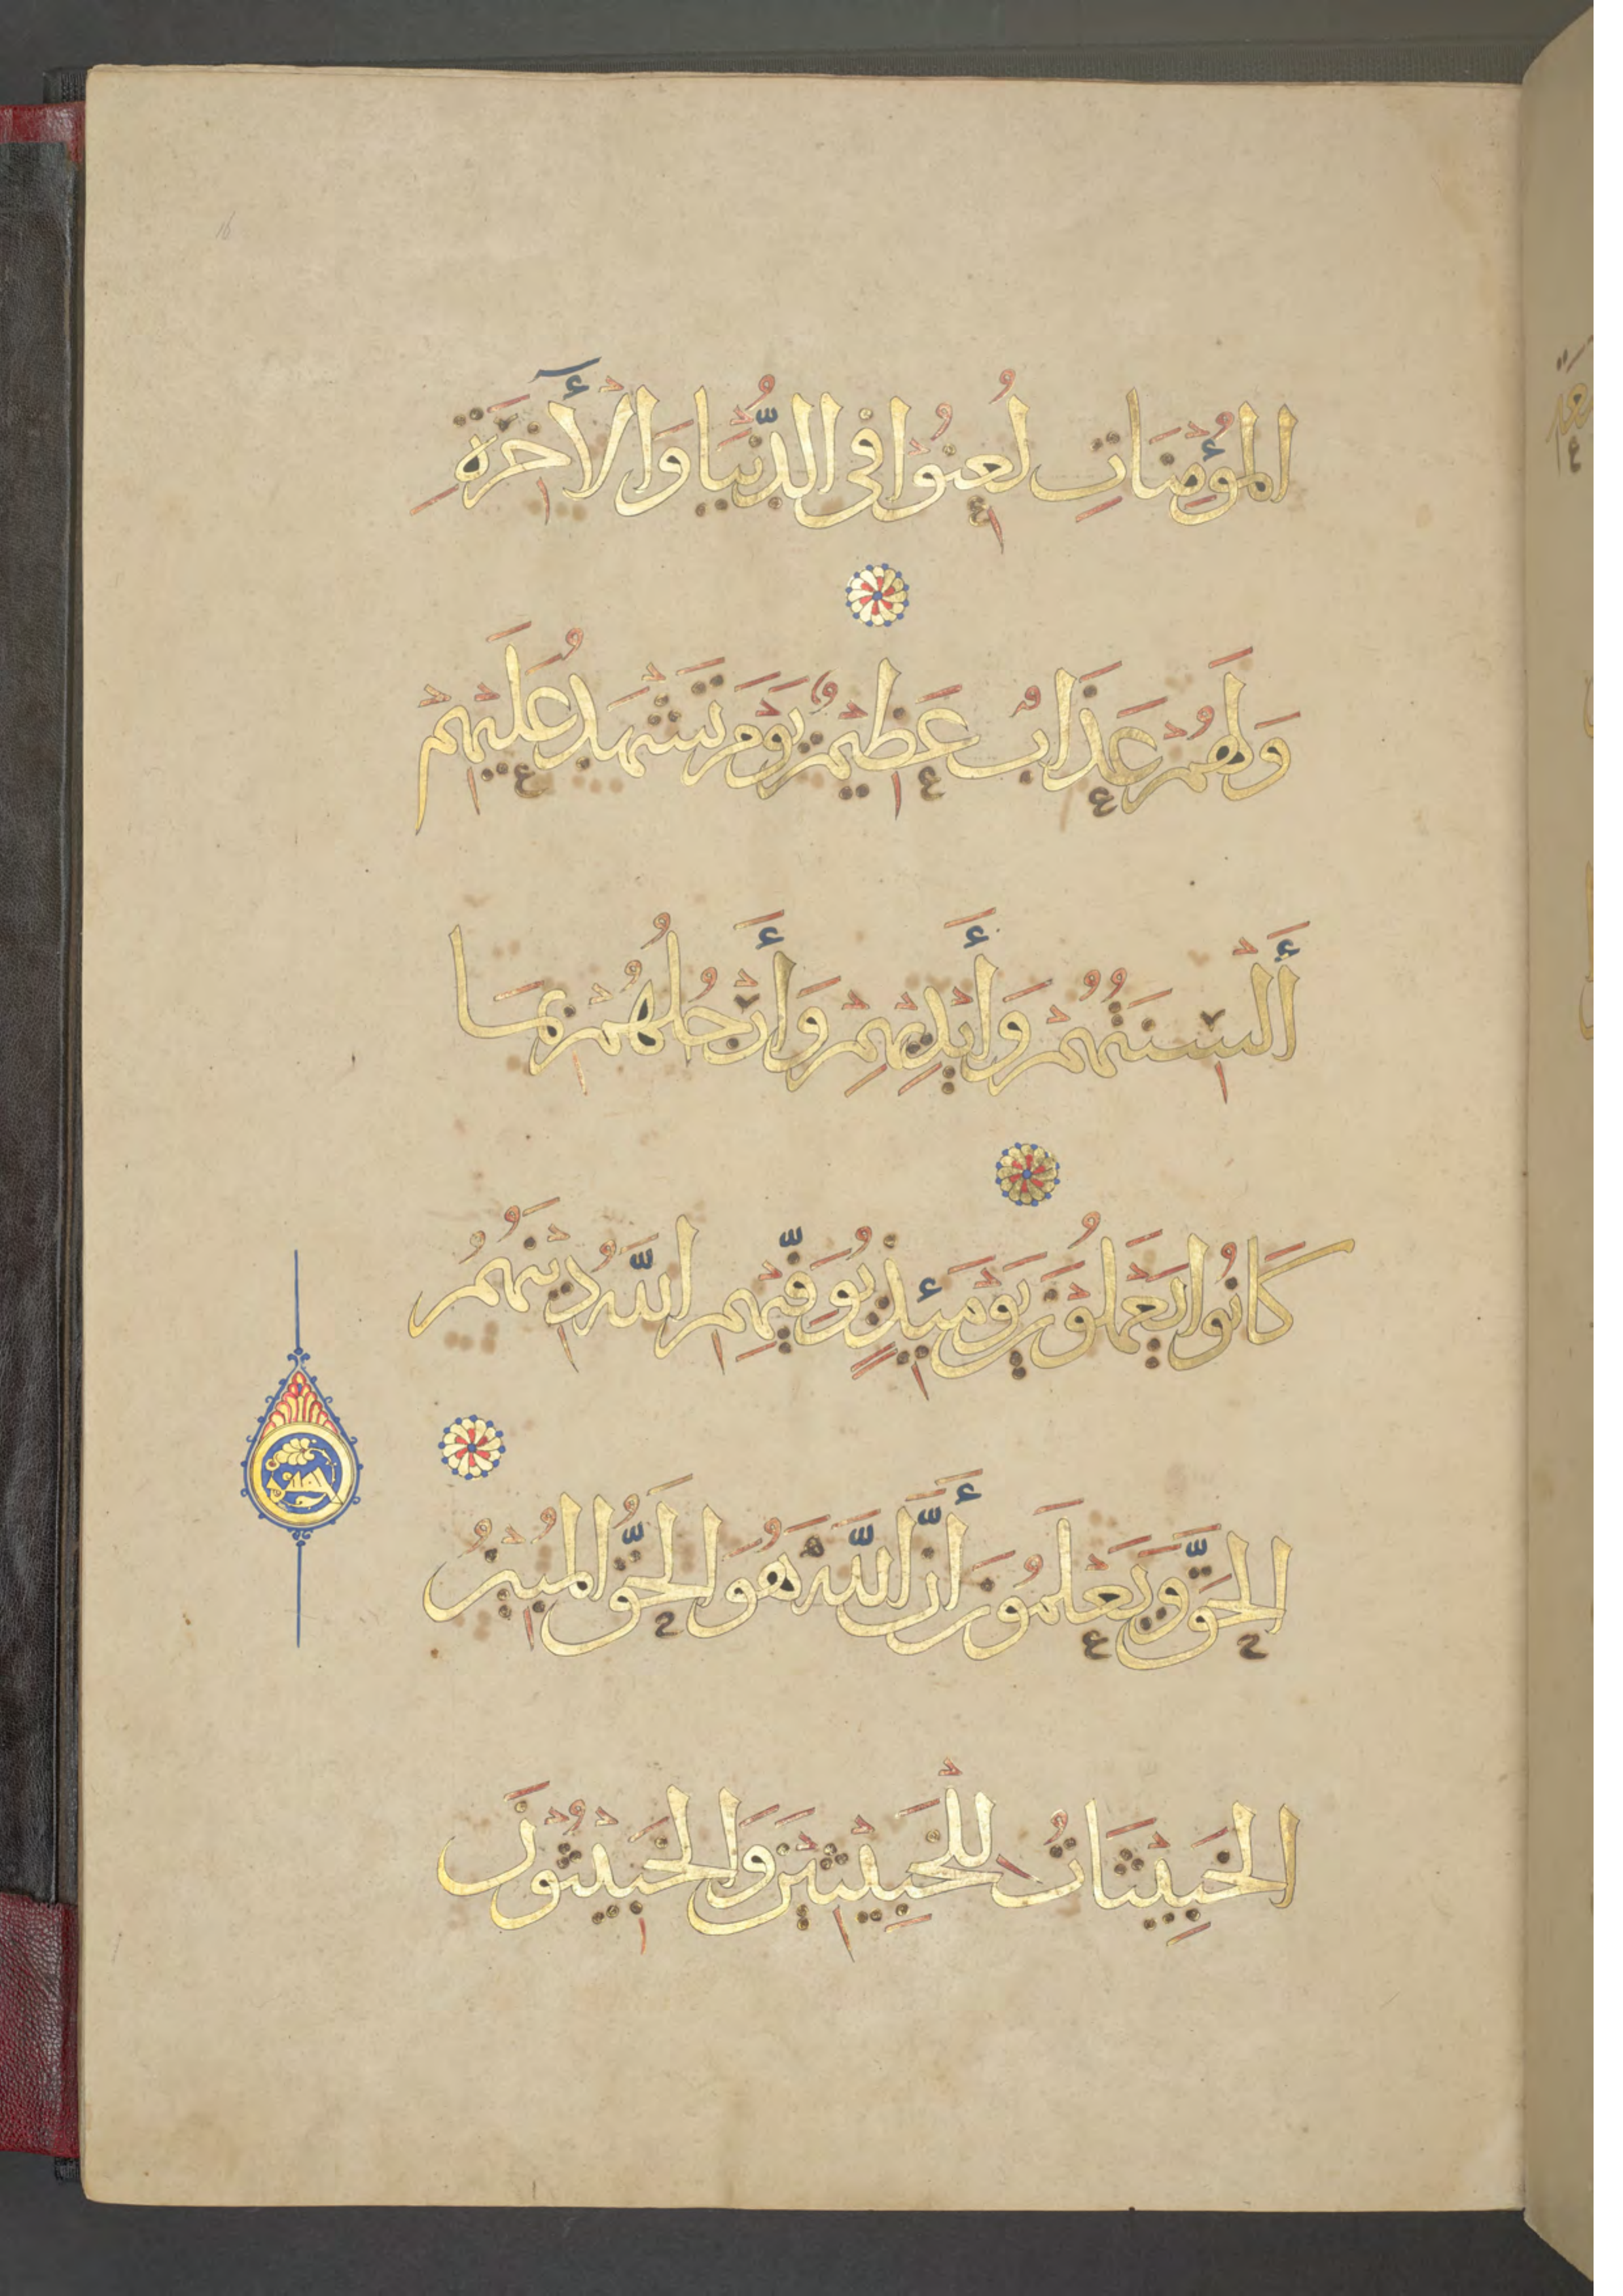 المُؤْمِنَاتِ لُعِنُوْا فِي الدُّنْيَا وَالْأَخِرَةِ
وَلَهُمْ عَذَابٌ عَظِيْمٌ يَوْمَ تَشْهَدُ عَلَيْهِمْ
أَلْسِنَتُهُمْ وَأَيْدِيْهِمْ وَأَرْجُلُهُمْ بِمَا
كَانُوا يَعْمَلُوْنَ يَوْمَئِذٍ يُوَفِّيْهِمِ اللَّهُ دِيْنَهُمُ
الحَقَّ وَيَعْلَمُوْنَ أَنَّ اللَّهَ هُوَ الحَقُّ المُبِيْنُ
الخَبِيْثَاتُ لِلْخَبِيْثِيْنَ وَالخَبِيْثُوْنَ